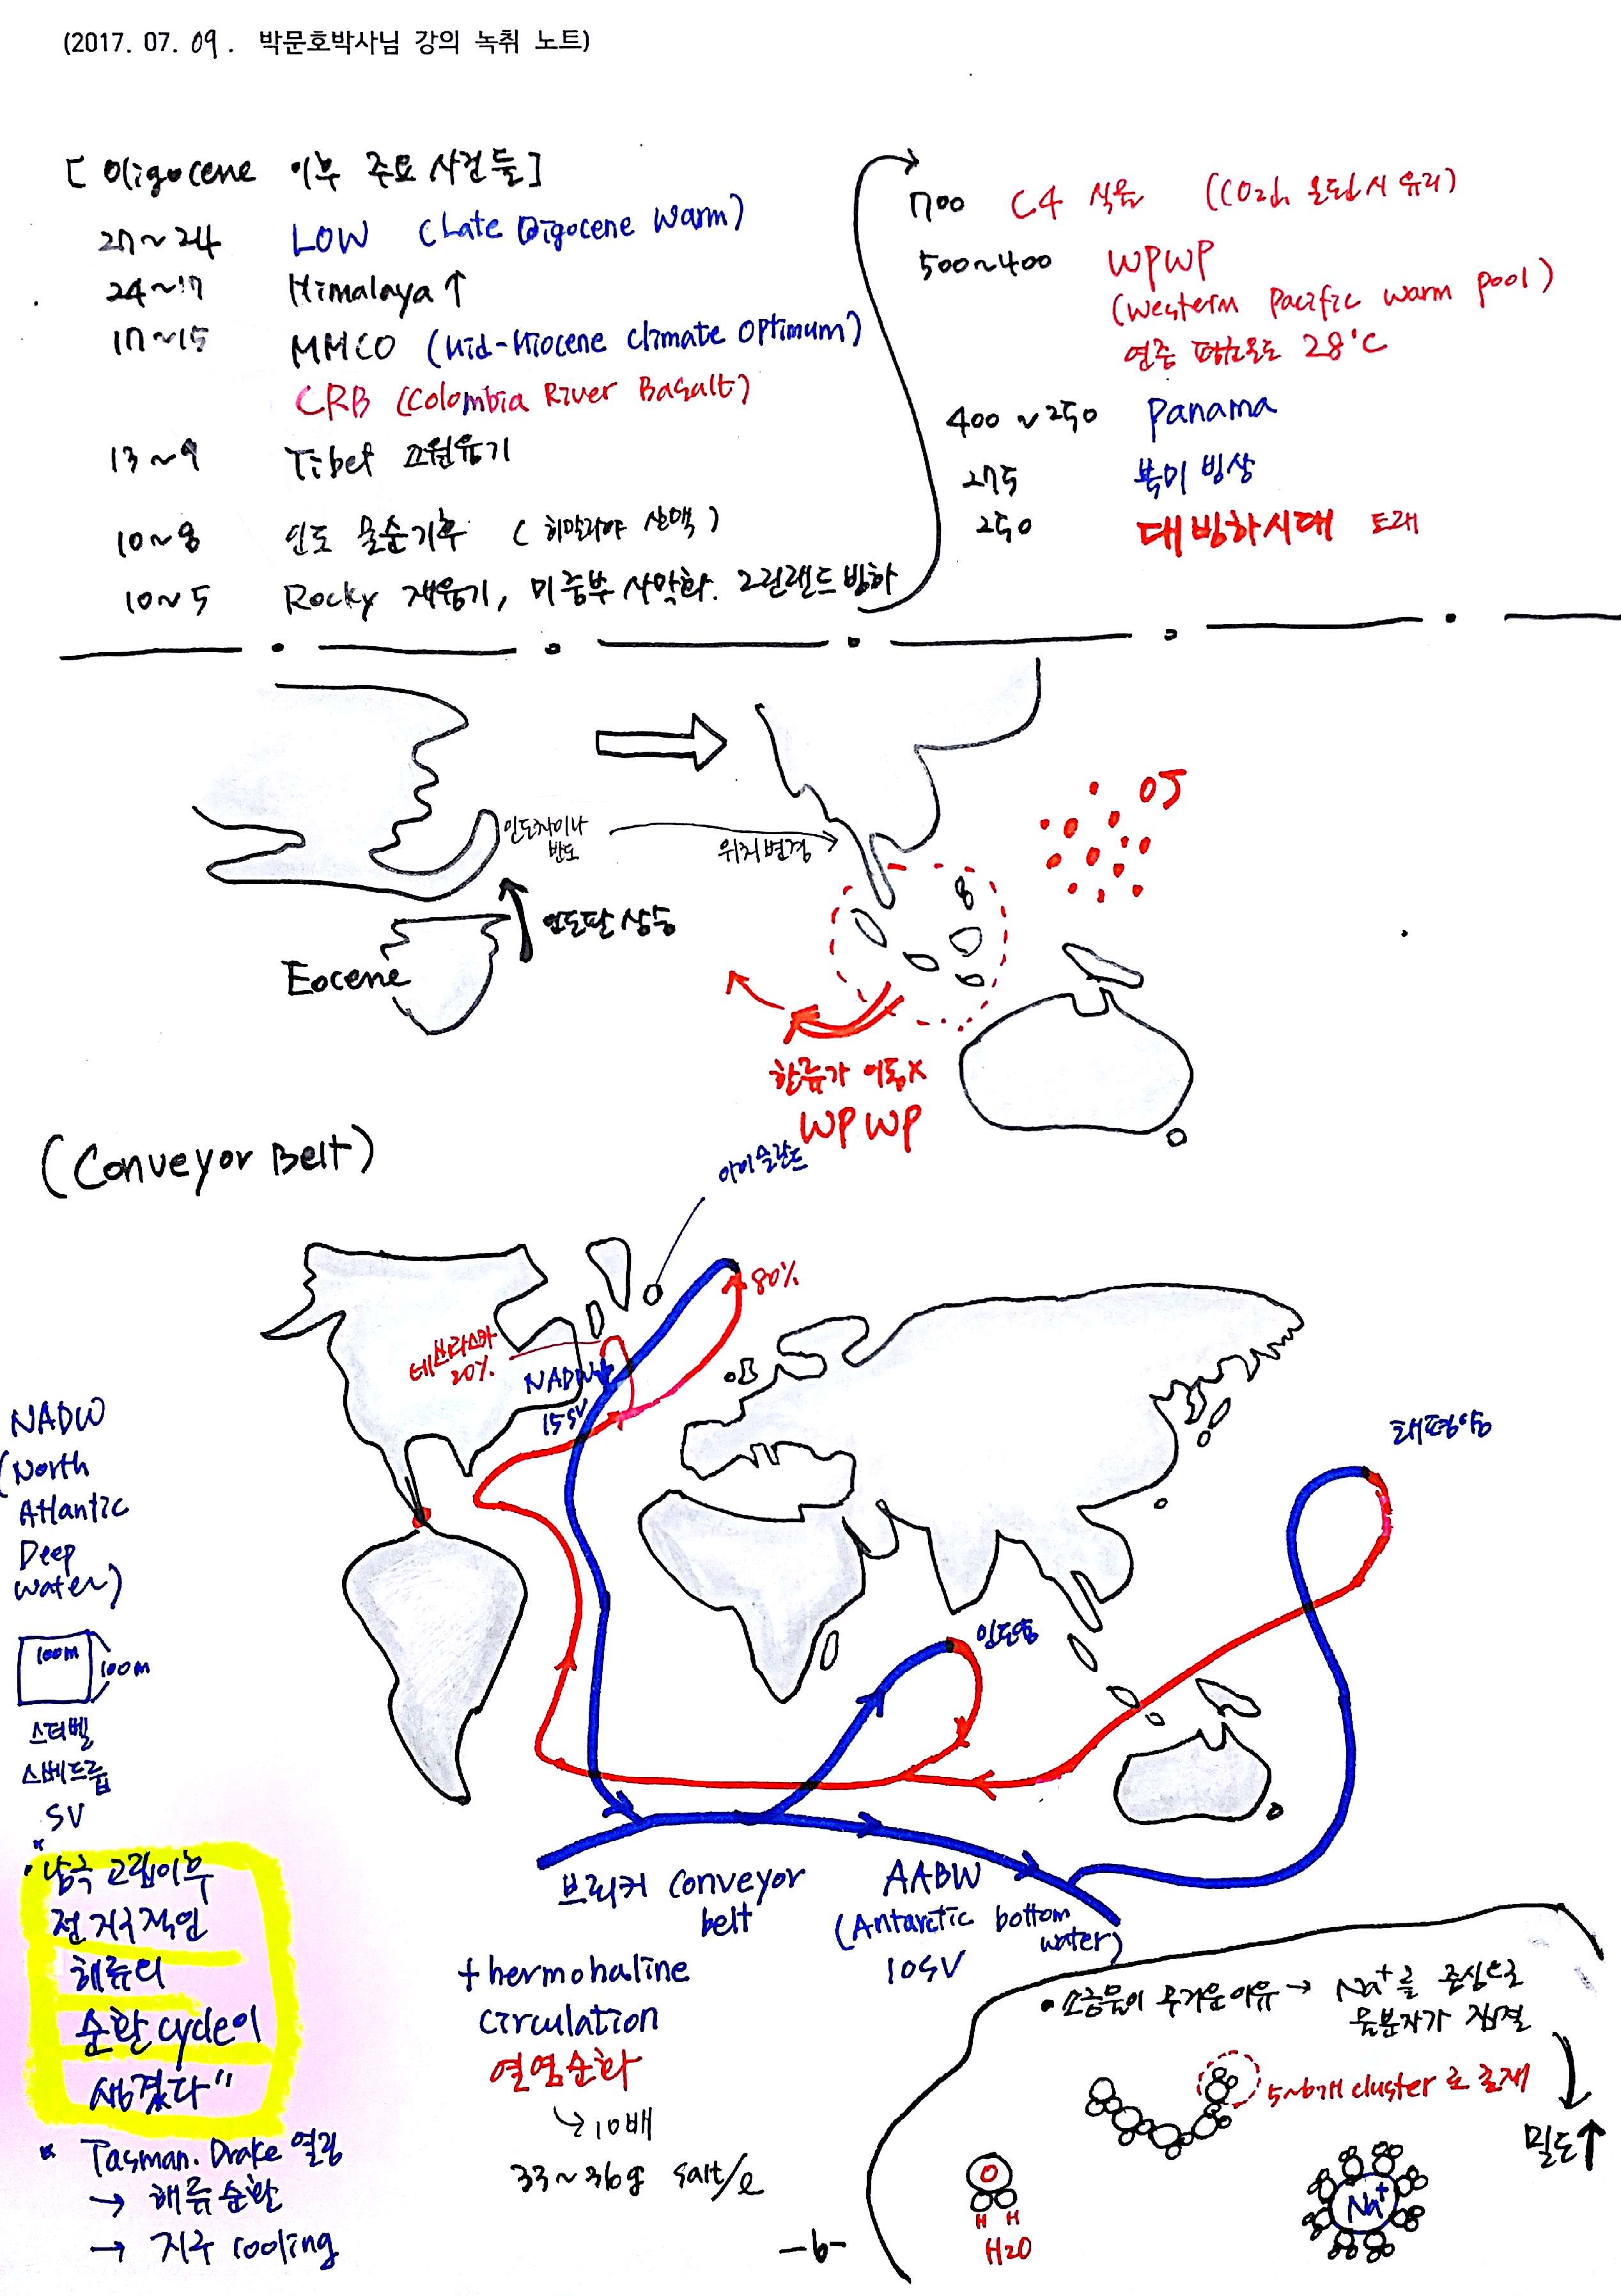 (2017. 07. 09. 박문호박사님 강의 녹취 노트)
[Oligocene 이후 주요 사건들]
27~24 LOW (Late Oligocene Warm)
24~17 Himalaya↑
17~15 MMCO (Mid-Miocene Climate Optimum)
CRB (Colombia River Basalt)
13~9 Tibet 고원융기
10~8 인도 몬순기후 (히말라야 산맥)
10~5 Rocky 재융기, 미중부 사막화. 그린랜드 빙하
700 C4 식물 (CO2↓, 온난시 유리)
500~400 WPWP
(Western Pacific Warm pool)
연중 평균온도 28°C
400~250 Panama
275 북미 빙상
250 대빙하시대 도래
OJ
인도차이나
반도
위치변경
인도판 상승
Eocene
한류가 이동X
WPWP
(Conveyor Belt)
아이슬란드
80%
20%
NADW
15SV
NADW
(North
Atlantic
Deep
Water)
100m
100m
스베드룹
SV
태평양
인도양
"남극 고립이후
전 지구적인
해류의
순환 cycle이
생겼다"
* Tasman. Drake 열림
→ 해류순환
→ 지구 cooling
브뢰커 Conveyor
belt
AABW
(Antarctic bottom
water)
10SV
thermohaline
circulation
열염순환
→10배
33~36g salt/ℓ
• 소금물이 무거운이유 → Na⁺를 중심으로
물분자가 집결
5~6개 cluster로 존재
밀도↑
O
H H
H2O
Na⁺
-6-